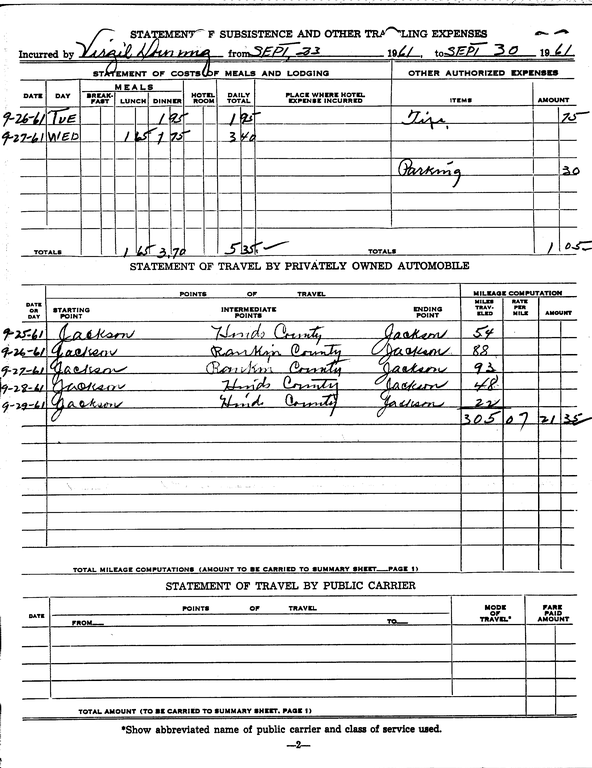 STATEMENT F SUBSISTENCE AND OTHER TRA LING EXPENSES
Incurred by Virgil from SEPT. 23 1961, to SEPT 30 1961
STATEMENT OF COSTS OF MEALS AND LODGING OTHER AUTHORIZED EXPENSES
DATE DAY MEALS BREAK-FAST LUNCH DINNER HOTEL ROOM DAILY TOTAL PLACE WHERE HOTEL EXPENSE INCURRED ITEMS AMOUNT
9-26-61 TUE 1 95 1 95 Tips 75
9-27-61 WED 1 65 1 75 3 40
Parking 30
TOTALS 1 65 3.70 5 35 TOTALS 1 05
STATEMENT OF TRAVEL BY PRIVATELY OWNED AUTOMOBILE
POINTS OF TRAVEL MILEAGE COMPUTATION
DATE OR DAY STARTING POINT INTERMEDIATE POINTS ENDING POINT MILES TRAV-ELED RATE PER MILE AMOUNT
9-25-61 Jackson Hinds County Jackson 54
9-26-61 Jackson Rankin County Jackson 88
9-27-61 Jackson Rankin County Jackson 93
9-28-61 Jackson Hinds County Jackson 48
9-29-61 Jackson Hinds County Jackson 22
305 07 21 35
TOTAL MILEAGE COMPUTATIONS (AMOUNT TO BE CARRIED TO SUMMARY SHEET—PAGE 1)
STATEMENT OF TRAVEL BY PUBLIC CARRIER
DATE POINTS OF TRAVEL MODE OF TRAVEL* FARE PAID AMOUNT
FROM— TO—
TOTAL AMOUNT (TO BE CARRIED TO SUMMARY SHEET, PAGE 1)
*Show abbreviated name of public carrier and class of service used.
—2—